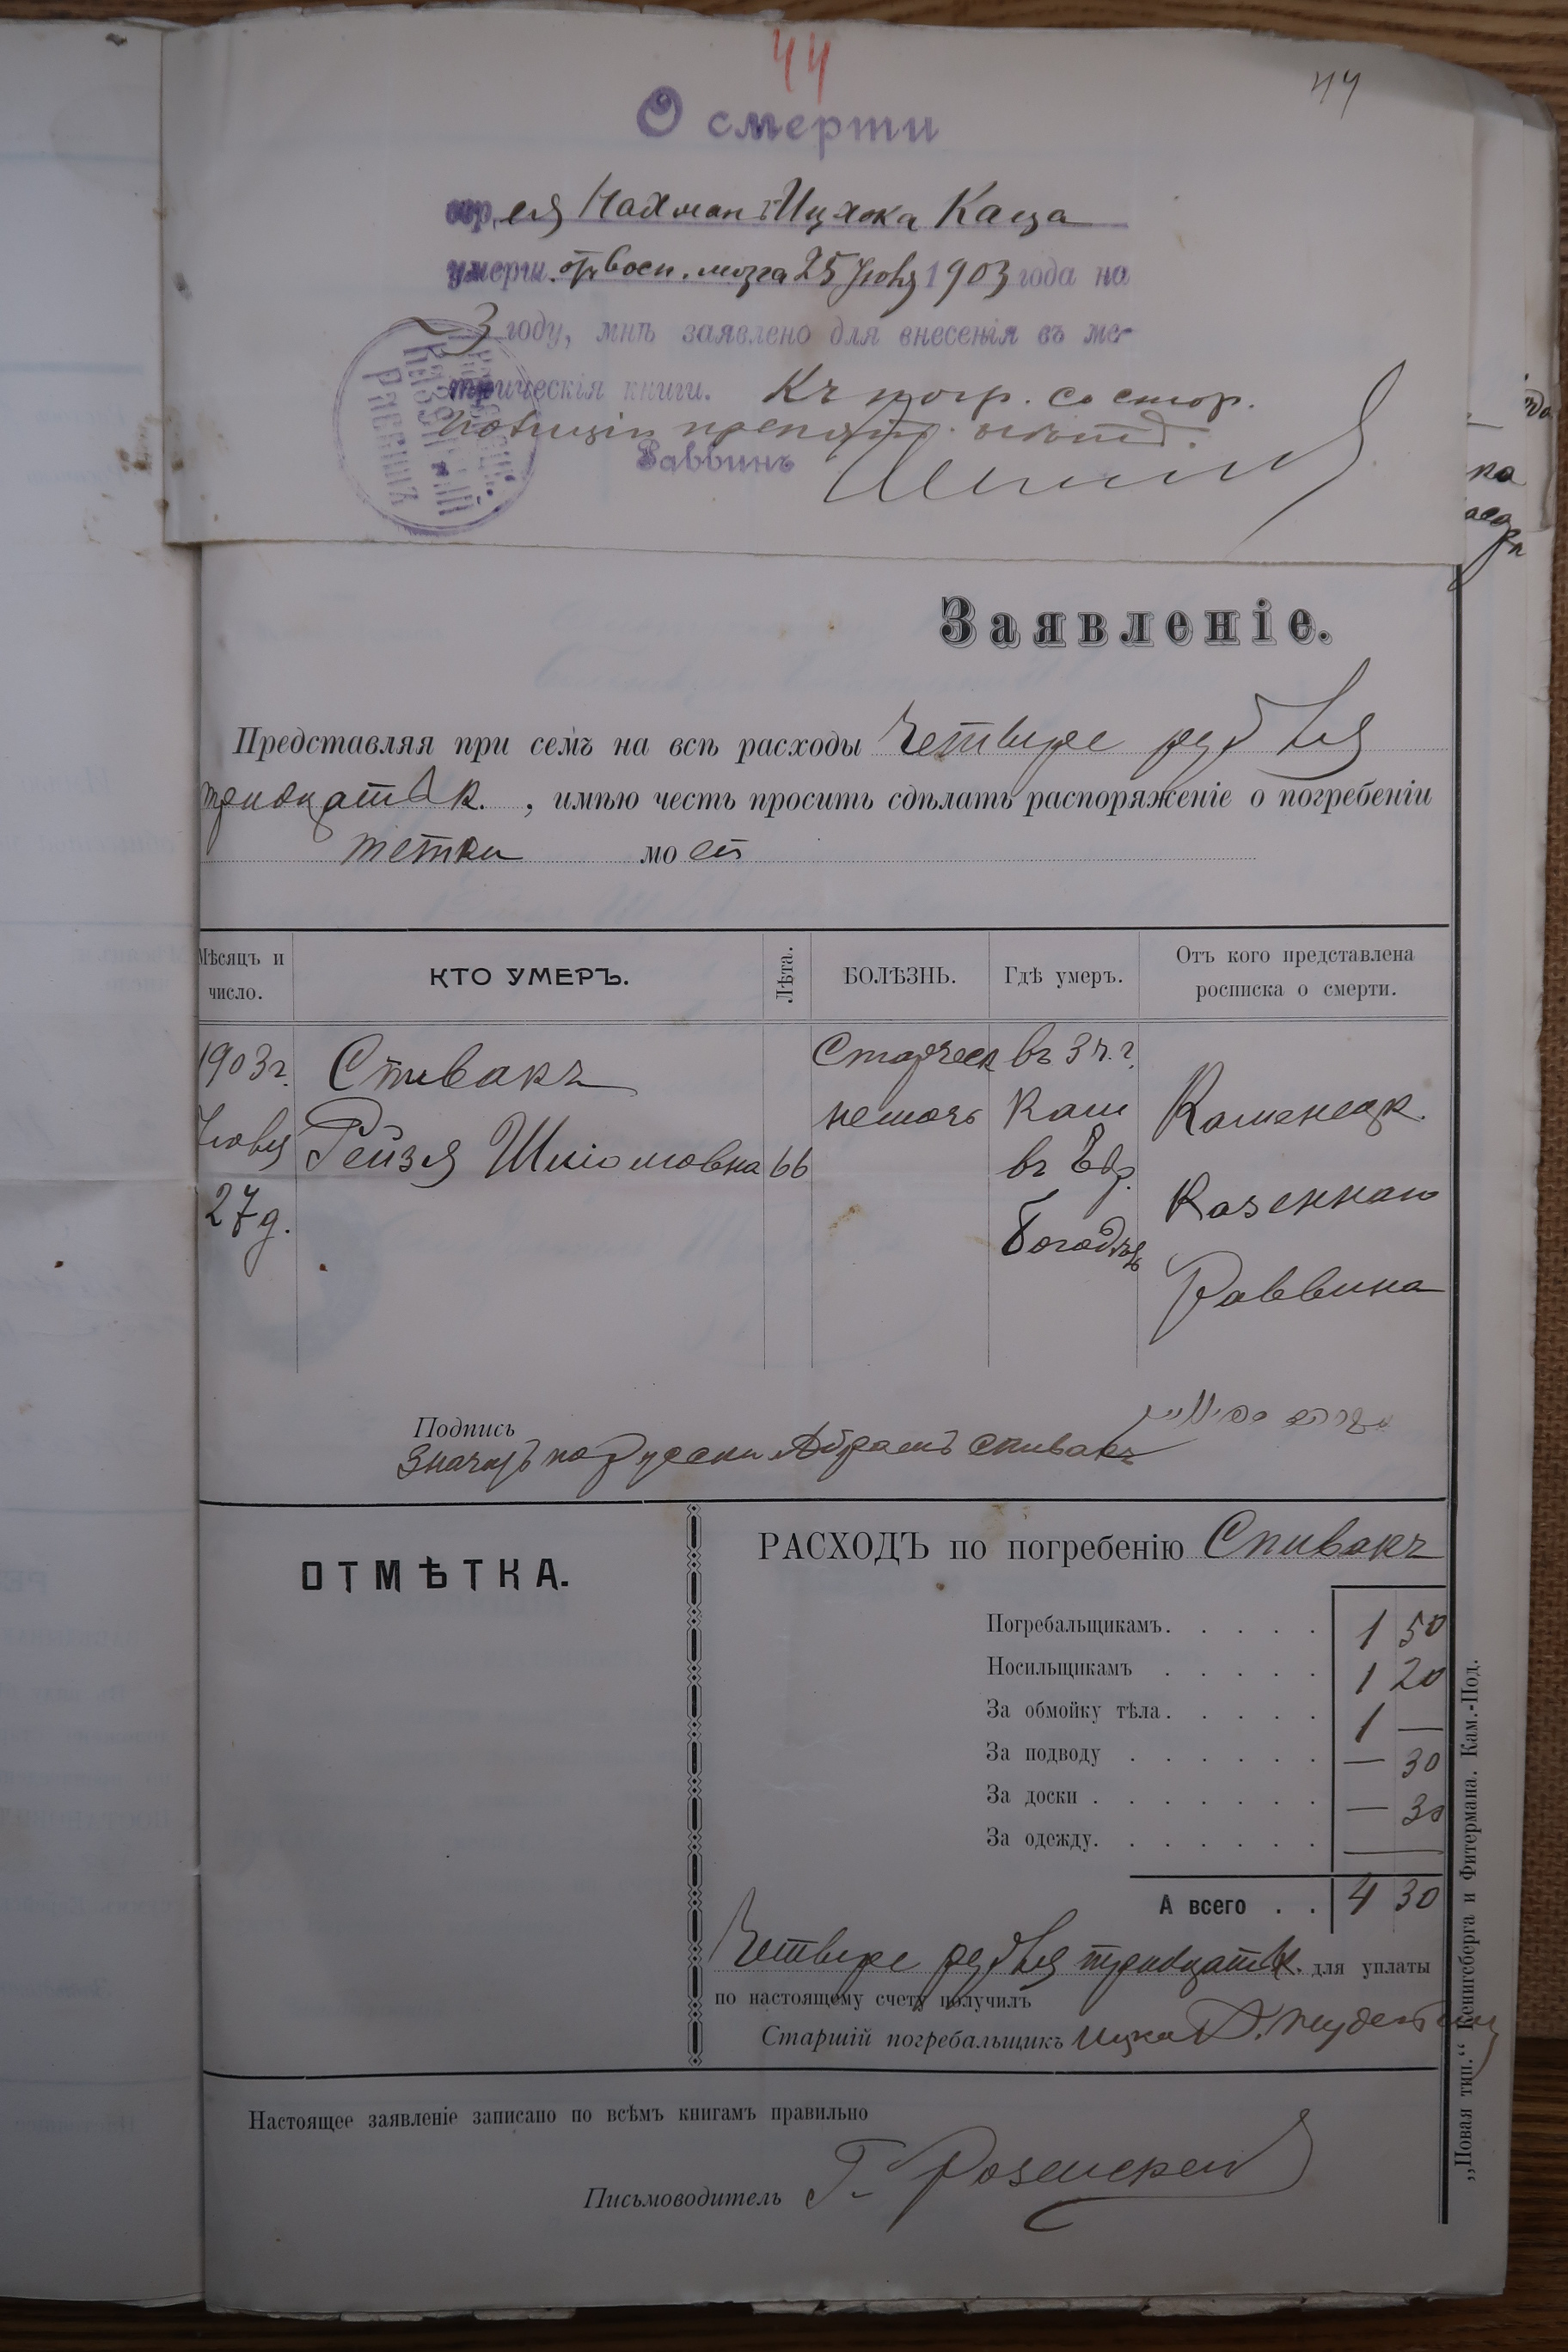 44
44
О смерти
евр. ея Нахман Ицхока Каца
умерш. от восп. мозга 25 Июня 1903 года на
3 году, мнѣ заявлено для внесенія въ ме-
трическія книги. Къ погр. со стор.
полиціи препятст.
Раввинъ
Заявленіе.
Представляя при семъ на всѣ расходы Четыре рубля
тридцать к. , имѣю честь просить сдѣлать распоряженіе о погребеніи
тетки моей
Мѣсяцъ и число. КТО УМЕРЪ. Лѣта. БОЛѢЗНЬ. Гдѣ умеръ. Отъ кого представлена росписка о смерти.
1903 г. Спивакъ Старческ въ г.
Июня Рейзя Шліомовна 66 немочь Кам Каменецк.
27 д. въ Евр. Казеннаго
Богадѣл Раввина
Подпись
Значитъ по Русски Абрамъ Спивакъ
ОТМѢТКА.
РАСХОДЪ по погребенію Спивакъ
Погребальщикамъ. . . . . 1 50
Носильщикамъ . . . . . 1 20
За обмойку тѣла. . . . . 1 —
За подводу . . . . . . — 30
За доски . . . . . . . — 30
За одежду. . . . . . . —
А всего . . 4 30
Четыре рубля тридцать к. для уплаты
по настоящему счету получилъ
Старшій погребальщикъ Ицко
Настоящее заявленіе записано по всѣмъ книгамъ правильно
Письмоводитель Г.
„Новая тип.“ Кенигсберга и Фитермана. Кам.-Под.